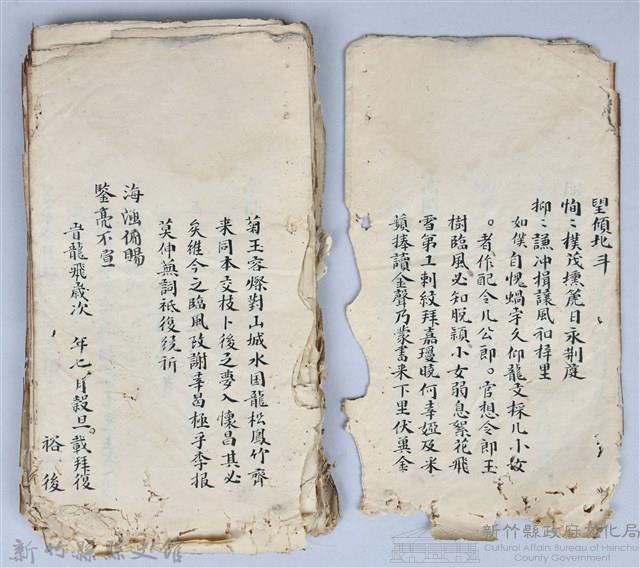 望傾北斗
恂〻樸茂壎箎日永荆庭
抑〻謙冲揖讓風和梓里
如僕自愧蝸宇久仰龍文採儿小女
。者作配令儿公郎。官想令郎玉
樹臨風必知脫穎小女弱息絮花飛
雪第工刺紋拜嘉瓊曉何幸婭及采
蘋捧讀金聲乃蒙書来下里伏冀金
菊玉容燦對山城水國龍松鳳竹齊
来同本交枝卜後之夢入懷昌其必
矣維今之臨風改謝幸曷極乎李报
莫仲無詞祗復統祈
海涵俯賜
鑒亮不宣
旹龍飛歲次 年七月穀旦。載拜復
裕後
新竹縣縣史館
新竹縣政府文化局
Cultural Affairs Bureau of Hsinchu
County Government